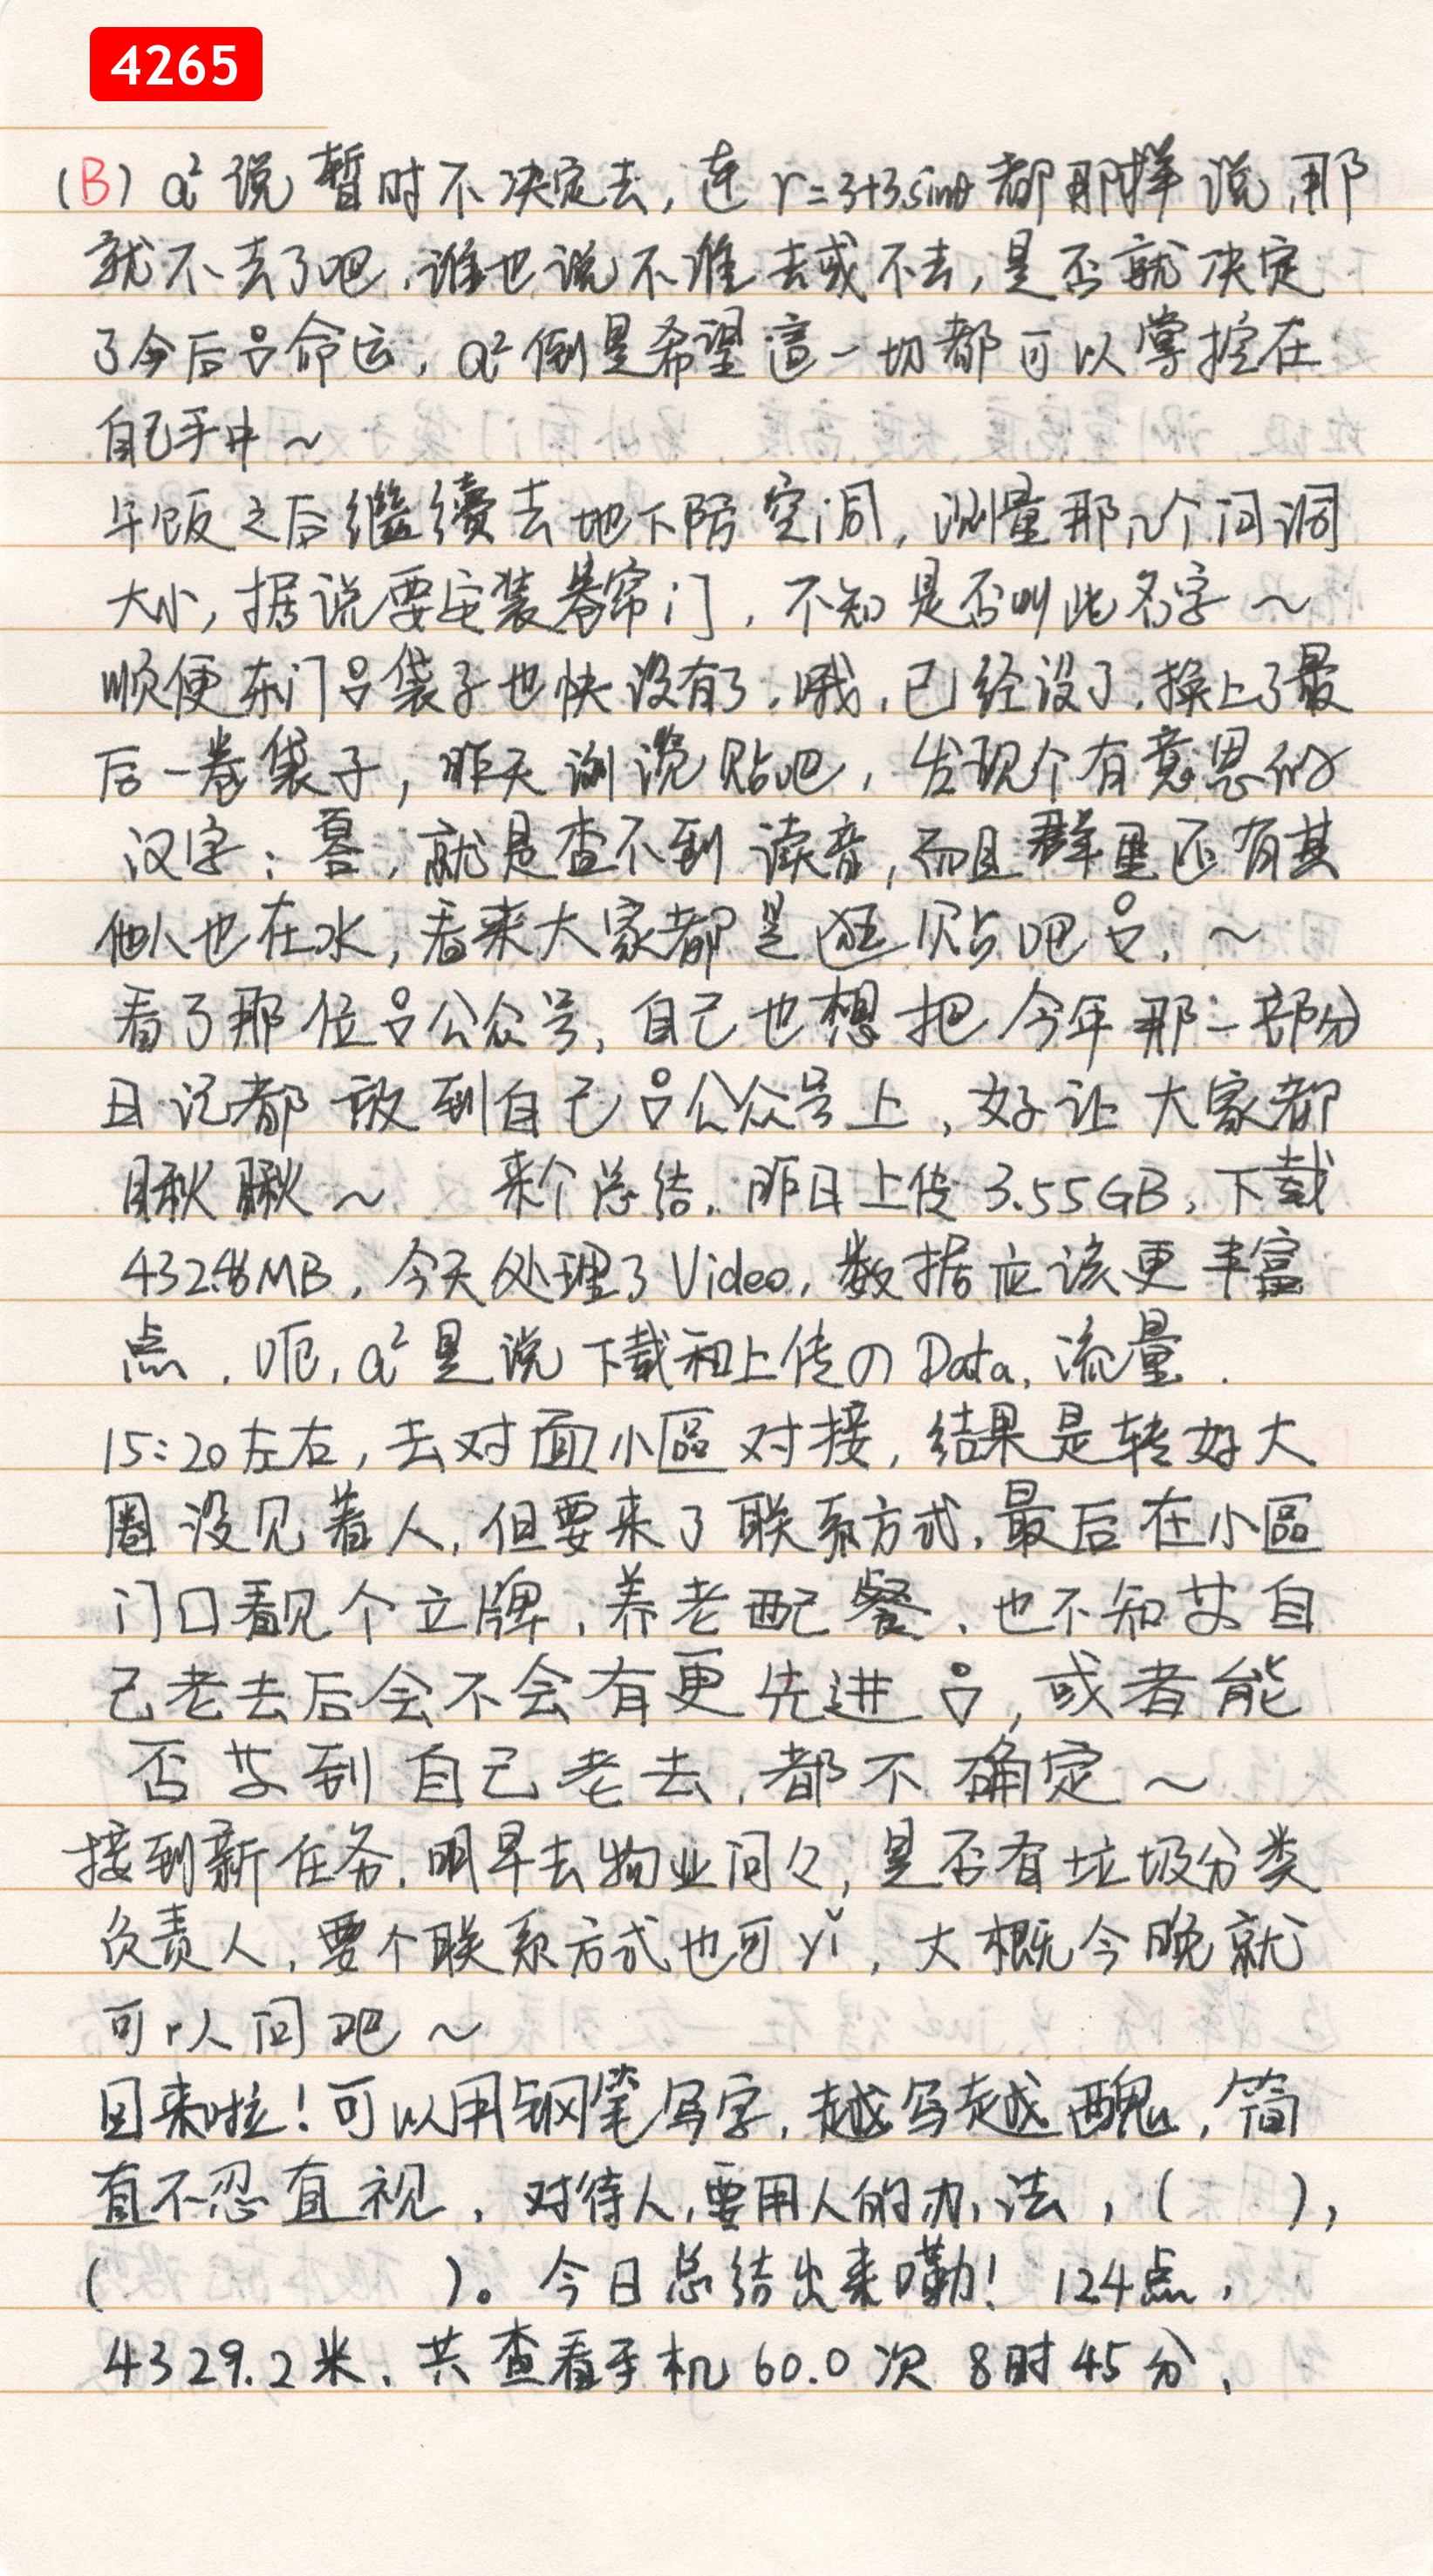 4265
(B) a² 说暂时不决定去,连 r=3+3sinθ 都那样说,那
就不去了吧,谁也说不准去或不去,是否就决定
了今后命运,a²倒是希望這一切都可以掌控在
自己手中~
午饭之后繼續去地下防空洞,测量那几个门洞
大小,据说要安装卷帘门,不知是否叫此名字~
顺便东门袋子也快没有了,哦,已经没了,换上了最
后一卷袋子,昨天浏览贴吧,发现个有意思的
汉字:,就是查不到读音,而且群里还有其
他人也在水,看来大家都是逛贴吧,~
看了那位公众号,自己也想把今年那一部分
日记都放到自己公众号上,好让大家都
瞅瞅~ 来个总结,昨日上传3.55GB,下载
432.8MB,今天处理了Video,数据应该更丰富
点,呃,a²是说下载和上传のData,流量.
15:20左右,去对面小區对接,结果是转好大
圈没见着人,但要来了联系方式,最后在小區
门口看见个立牌,养老配餐,也不知自
己老去后会不会有更先进,或者能
否到自己老去,都不确定~
接到新任务,明早去物业问々,是否有垃圾分类
负责人,要个联系方式也可yǐ,大概今晚就
可以问吧~
回来啦!可以用钢笔写字,越写越醜,简
直不忍直视,对待人,要用人的办法,( ),
( )。今日总结出来嘞!124点,
4329.2米,共查看手机60.0次8时45分,